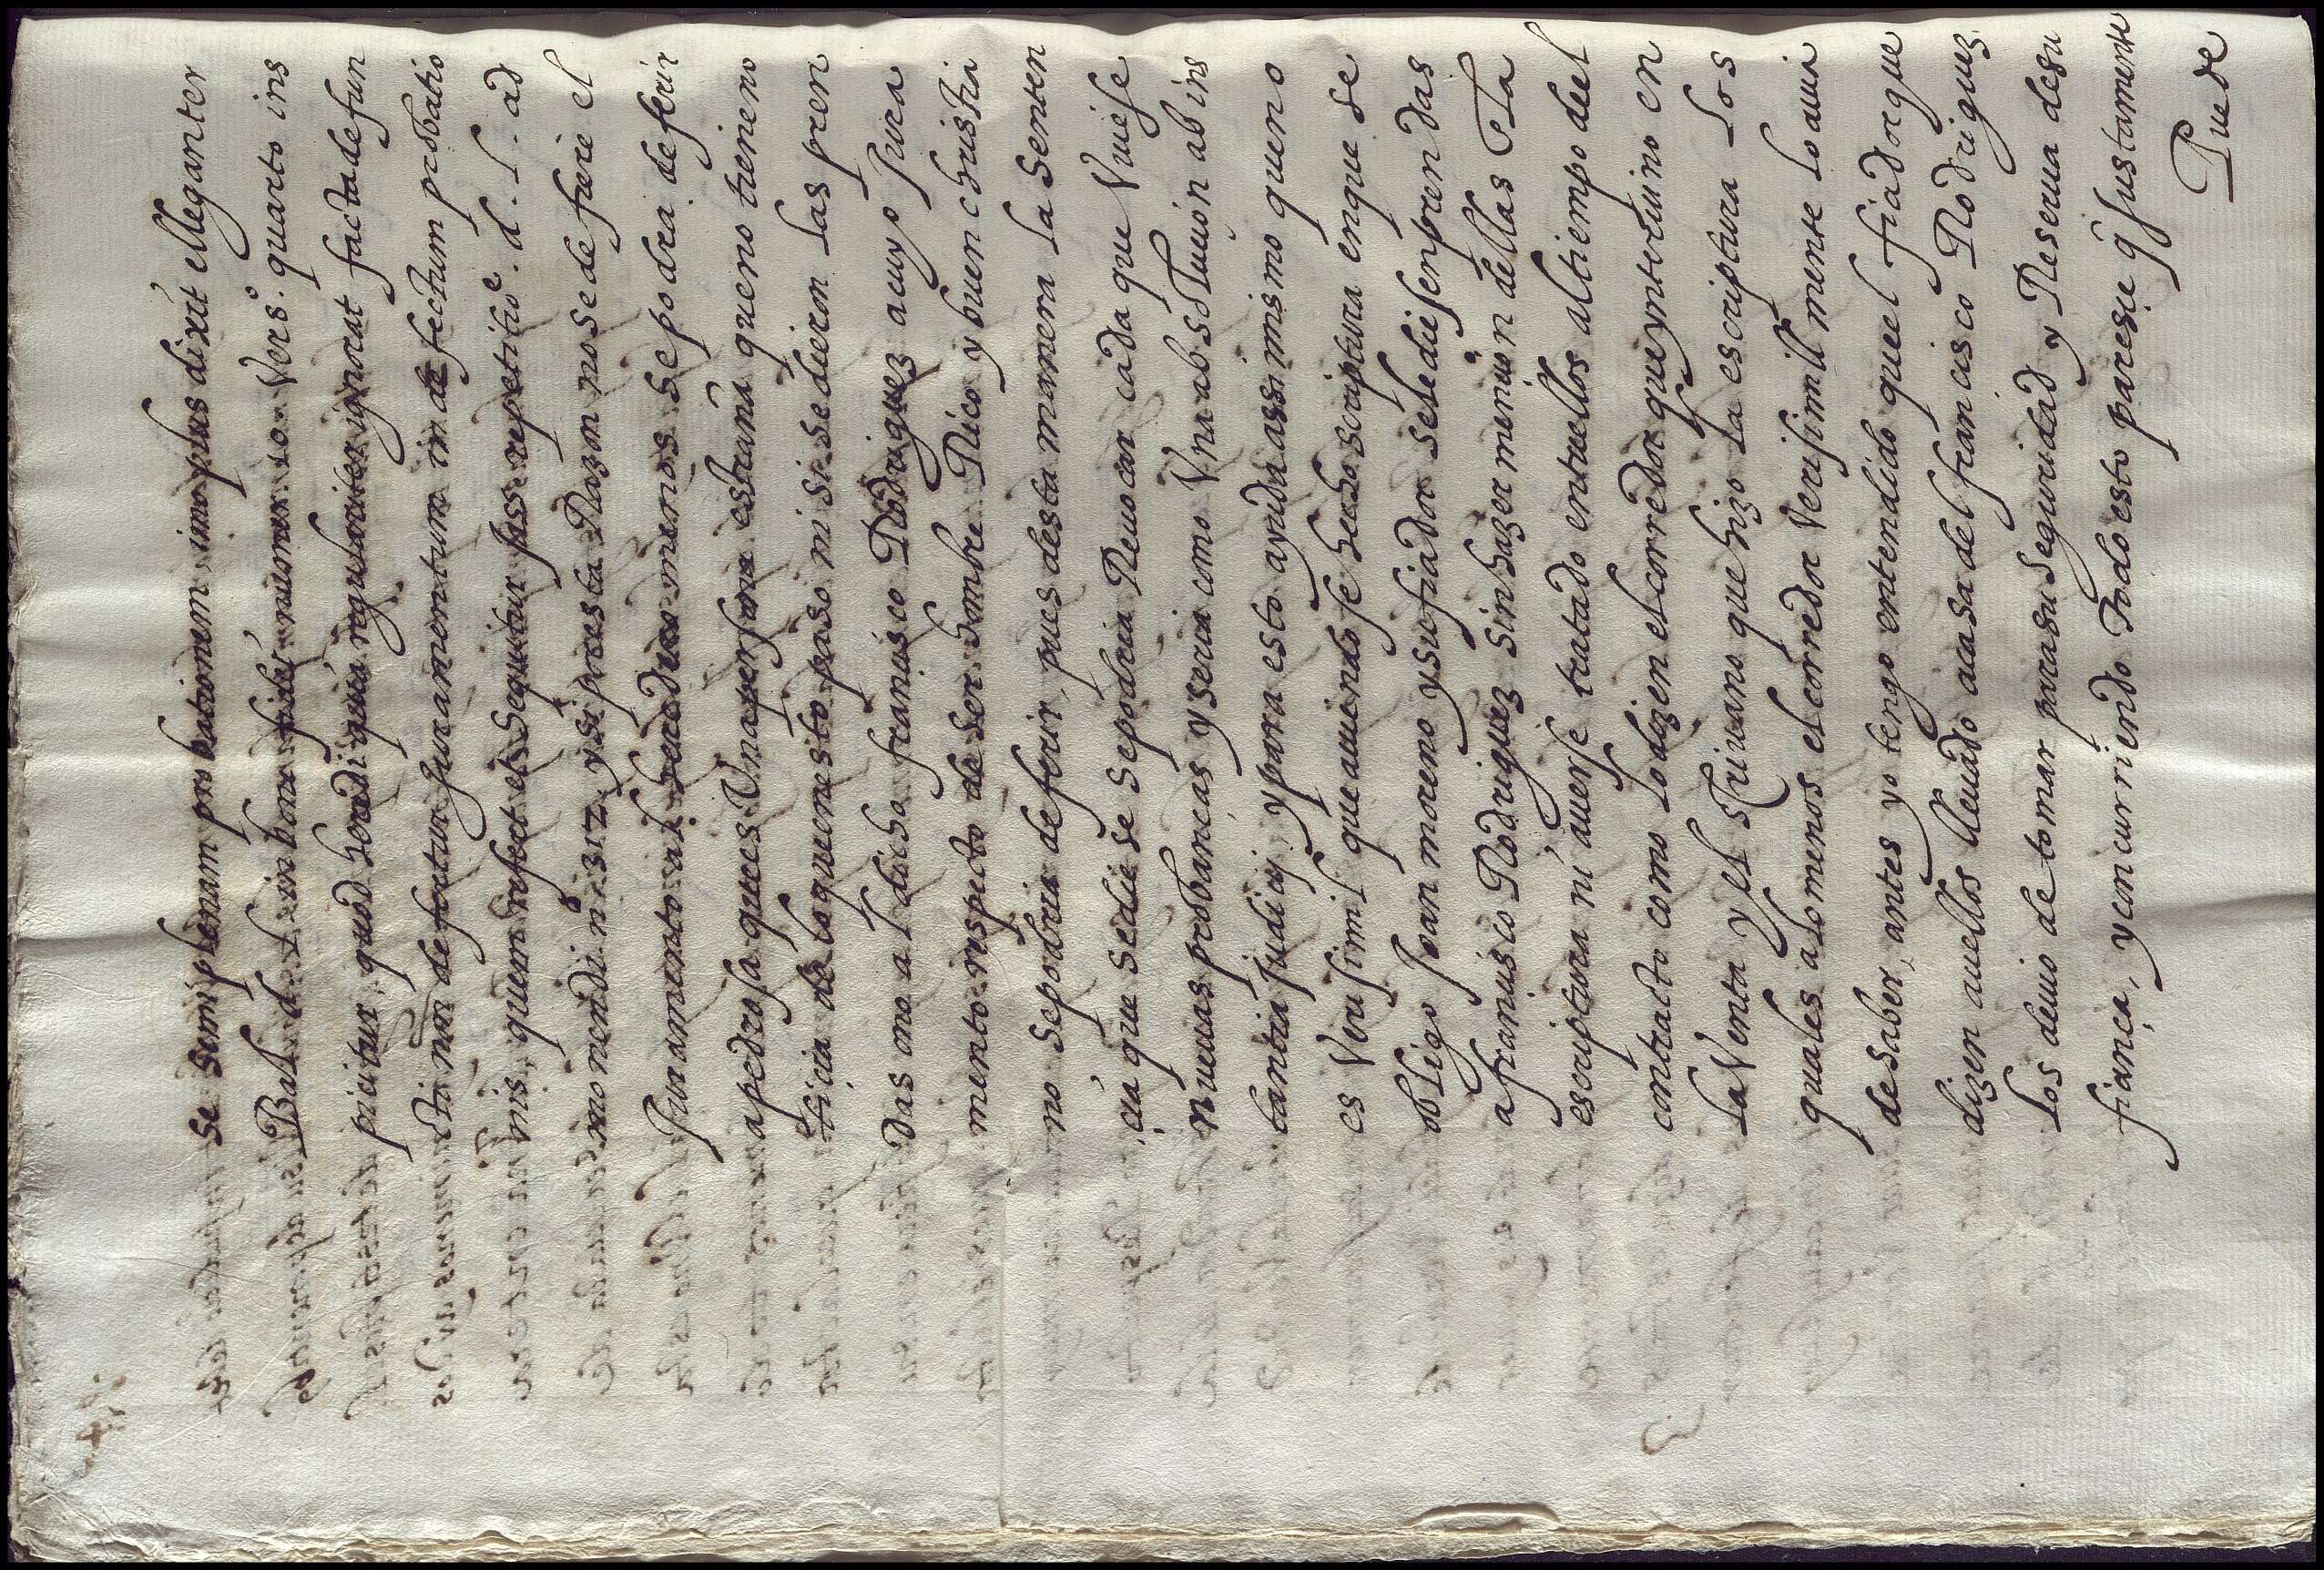 se semiplenam probationem, imo plus dixit elleganter
Bal. d. l. in bone fidei numer. 10. Vers.º quarto ins
picitur, quod heredi quia regulariter ignorat facta defun
cti non defertur Juramentum in defectum probatio
mis, quem refert et sequitur Jass. repetitio.e d. l. ad
monendi nº 312. y si por esta Razon no se defiere el
Juramento al heredero menos se podra deferir
a pedrosa que es Una persona estraña que no tiene no
ticia de lo que en esto paso ni si se dieron las pren
das o no al dicho francisco Rodriguez a cuyo Jura
mento respecto de ser hombre Rico y buen christia
no se podria deferir, pues desta manera la senten
cia que se diese se podria Reuocar cada que Vuiese
nueuas probanças y seria como Vna absoluçion ab ins
tantia judicij. y para esto ayuda assimismo que no
es Verisimil que auiendose hecho scriptura en que se
obligo Joan moreno y su fiador se le diesen prendas
a francisco Rodriguez sin hazer mençion dellas en la
escriptura ni auerse tratado entre ellos al tiempo del
contracto como lo dizen el corredor que ynteruino en
la Venta y el scriuano que hizo la escriptura los
quales a lo menos el corredor Verisimillmente lo auia
de saber, antes yo tengo entendido que el fiador que
dizen auellos lleuado a casa del francisco Rodriguez
los deuio de tomar para su seguridad y Reserua de su
fiança, y concurriendo todo esto paresçe q Justamente
Puede